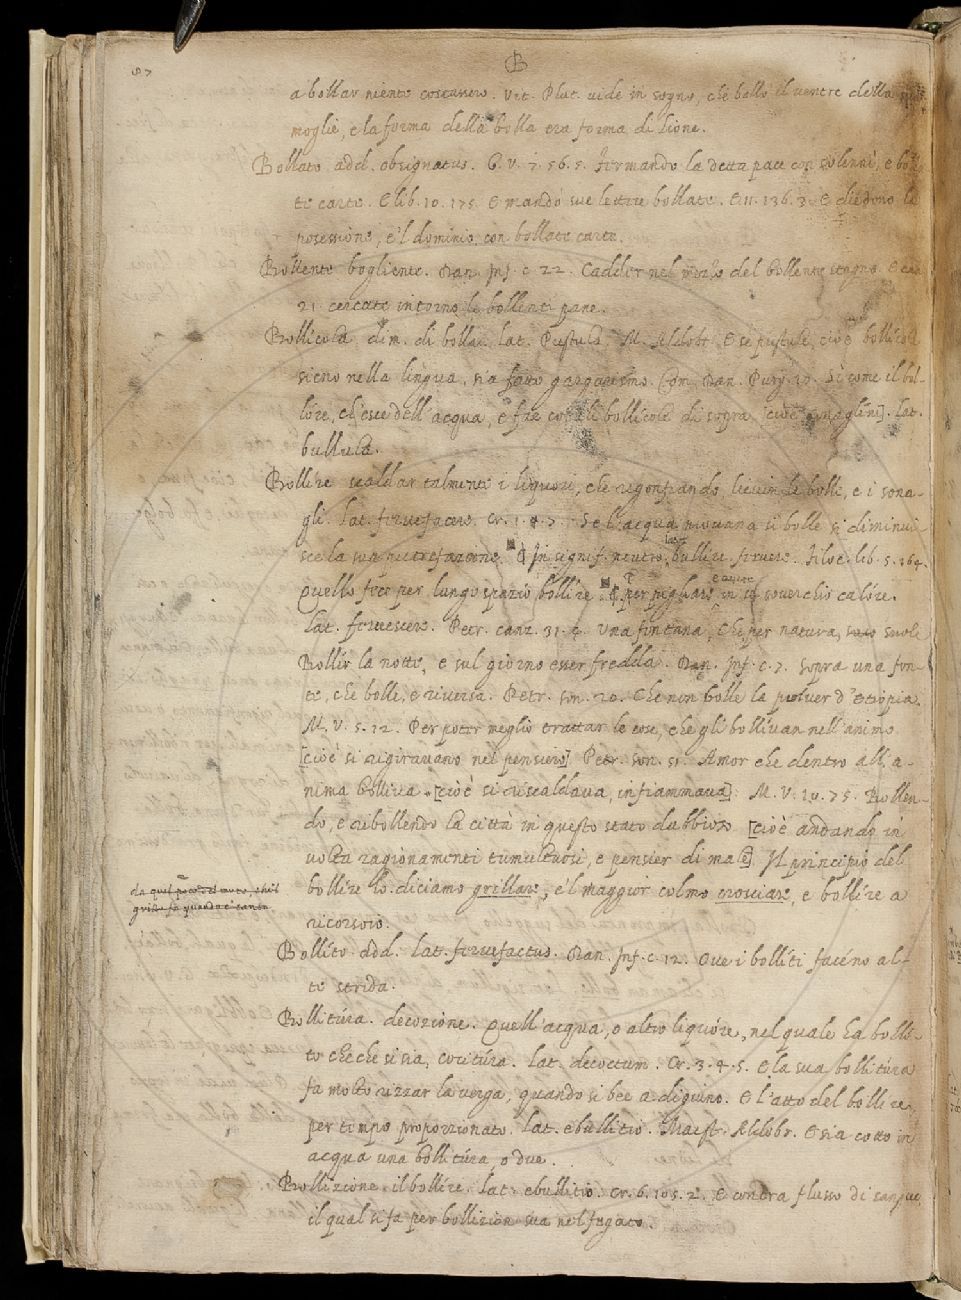 87
B
a bollar niente costassero. Vit. Plut. vide in sogno, che bollò il ventre della
moglie, e la forma della bolla era forma di lione.
Bollato add. obsignatus. G. V. 7. 56. 5. Fermando la detta pace con solenni, e bolla-
te carte. E lib. 10. 175. E mandò sue lettere bollate. E 11. 136. 3. E diedono la
posessione, e'l dominio con bollate carte.
Bollente bogliente. Dan. Inf. c. 22. Cadder nel mezzo del bollente stagno. E can.
21. cercate intorno le bollenti pane.
Bollicola dim. di bolla. lat. Pustula. M. Aldobr. E se pustule, cioè bollicole
sieno nella lingua, sia fatto gargarismo. Com. Dan. Purg. 17. Sì come il bol-
lore, ch'esce dell'acqua, e fae cotali bollicole di sopra [cioè sonaglini]. lat.
bullula.
Bollire scaldar talmente i liquori, che rigonfiando, lievin le bolle, e i sona-
gli. lat. fervefacere. Cr. 1. 4. 7. Se l'acqua niovana si bolle si diminui-
sce la sua putrefazione. E In signif. neutro, lat. bullire, fervere. Filoc. lib. 5. 264.
Quello feci per lungo spazio bollire. E per pigliare in se soverchio calóre.
lat. fervescere. Petr. canz. 31. 4. Una fontana, che per natura, suole
Bollir la notte, e sul giorno esser fredda. Dan. Inf. c. 7. sopra una fon-
te, che bolle, e riversa. Petr. son. 20. Che non bolle la polver d'Etiopia.
M. V. 5. 12. Per poter meglio trattar le cose, che gli bollivan nell'animo
[cioè si rigiravano nel pensiero] Petr. son. 51. Amor che dentro all'a-
nima bolliva. [cioè si riscaldava, infiammava]. M. V. 10. 75. Bollen-
do, e ribollendo la città in questo stato dubbioso [cioè andando in
volta ragionamenti tumultuosi, e pensier di male] Il principio del
bollire lo diciamo grillare, e'l maggior colmo crosciare, e bollire a
ricorsoio.
Bollíto. add. lat. fervefactus. Dan. Inf. c. 12. Ove i bolliti faceno al-
te strida.
Bollitúra. decozione. Quell'acqua, o altro liquóre, nel quale ha bolli-
to checche si sia, cocitúra. lat. decoctum. Cr. 3. 4. 5. E la sua bollitúra
fa molto rizzar la verga, quando si bee a digiuno. E l'atto del bollire
per tempo proporzionato. lat. ebullitio. Maest. Aldobr. E sia cotto in
acqua una bollitúra, o due.
Bollizione. il bollíre. lat. ebullitio. Cr. 6. 105. 2. E contra flusso di sangue,
il qual si fa per bollizion sua nel fegato.